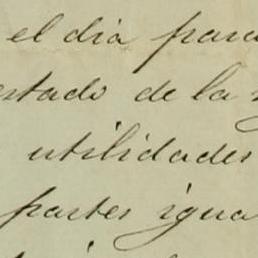 el dia para
stado de la
utilidades
partes igua